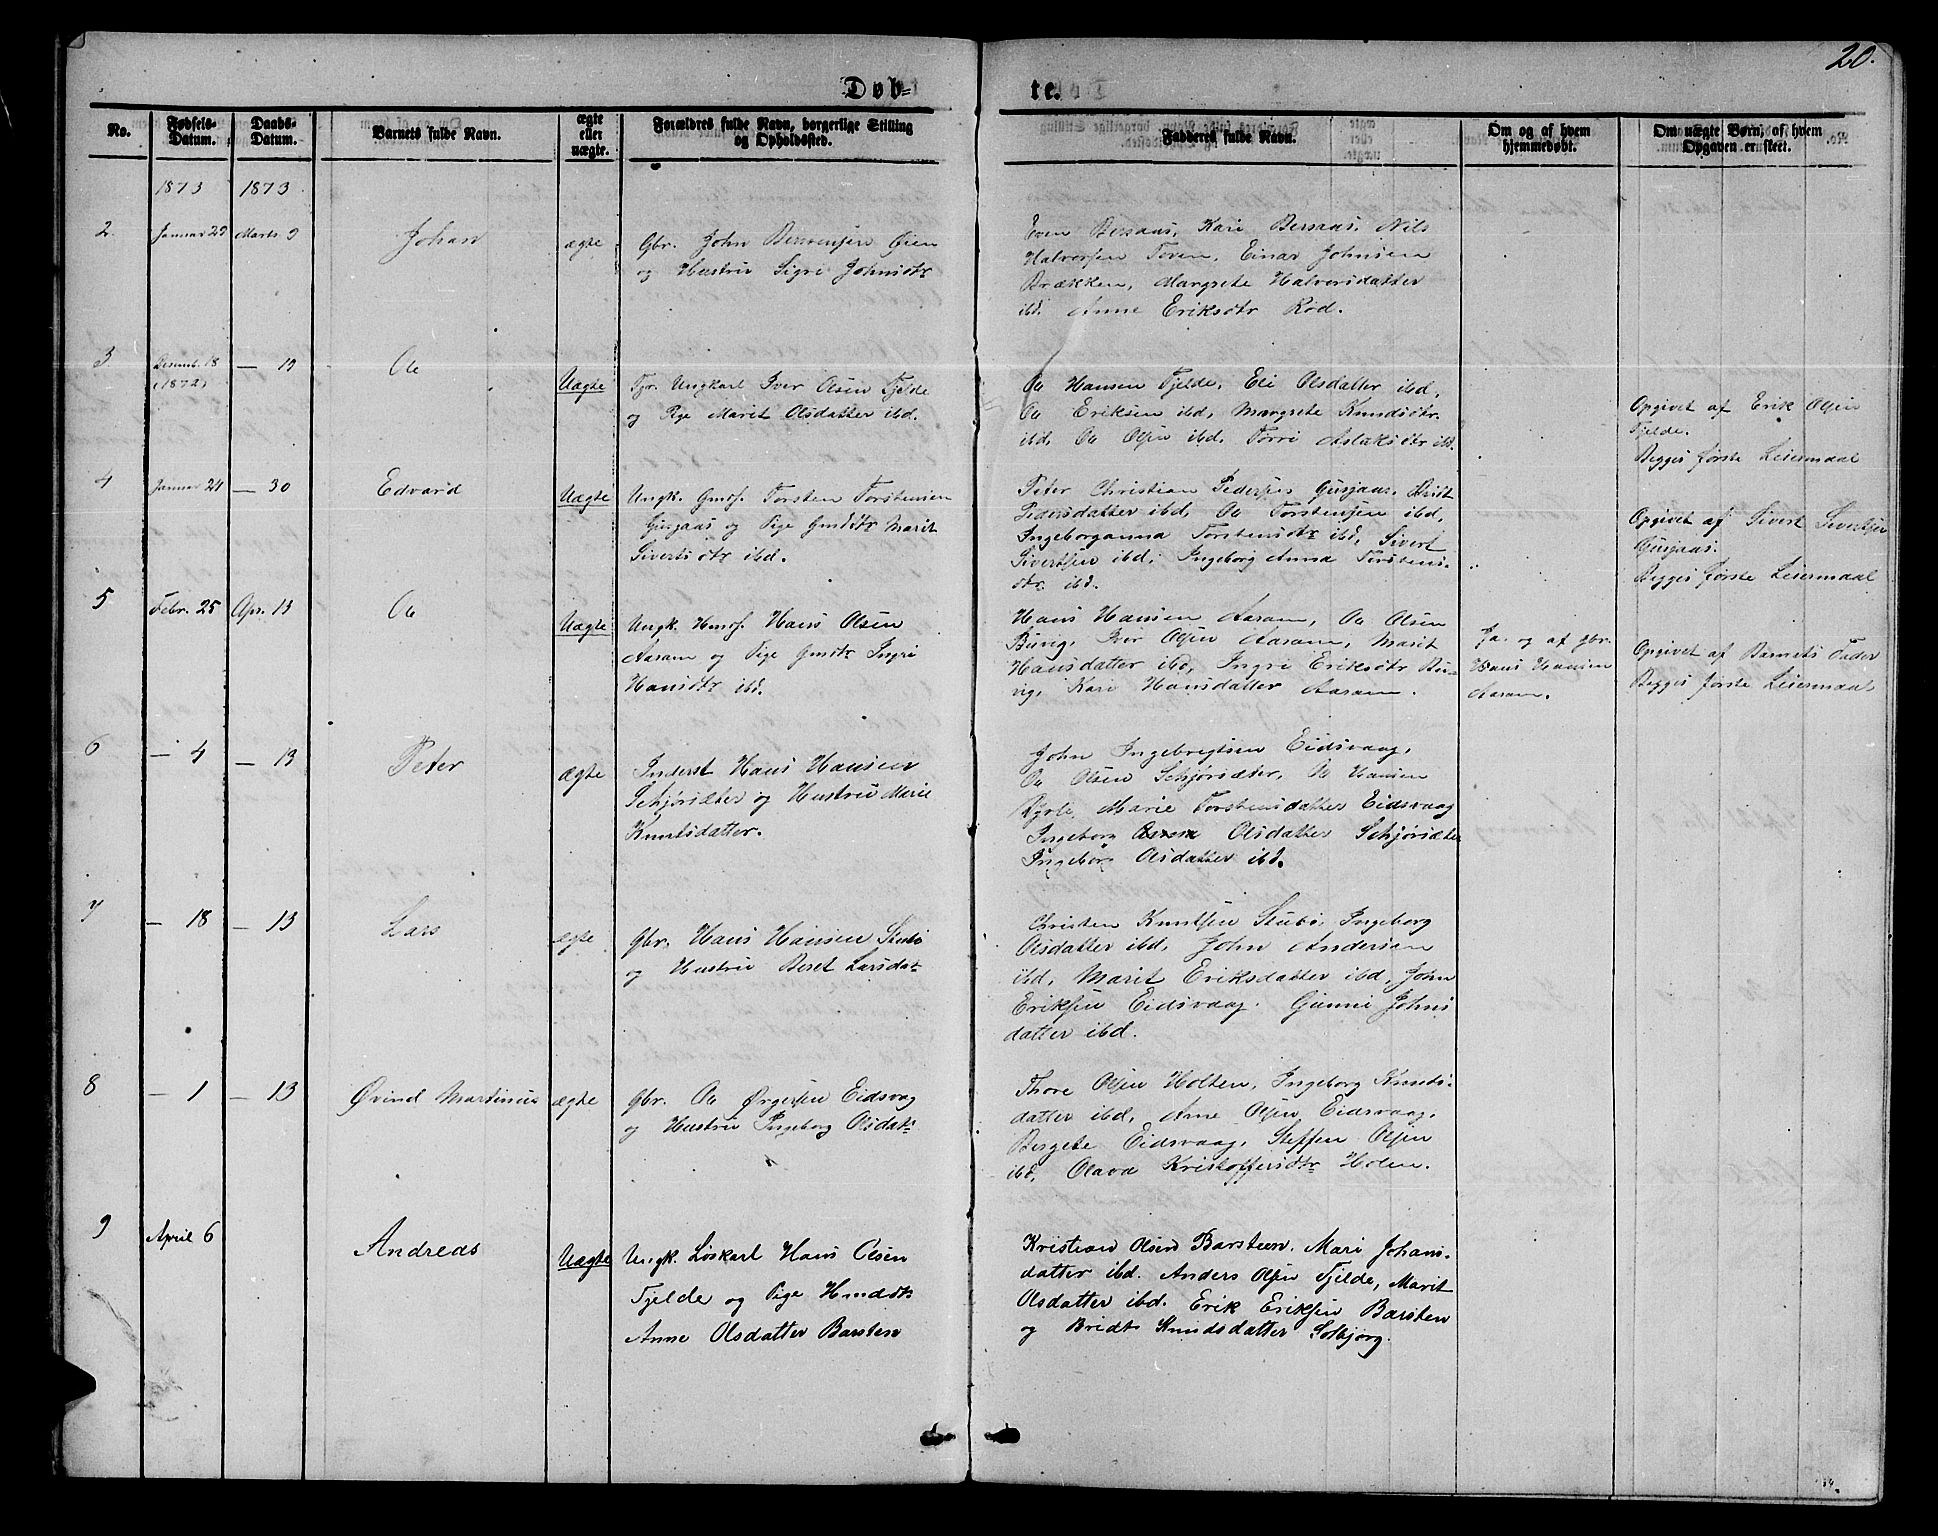 20.
Døb= te.
No.
Fødsels-Datum.
Daabs-Datum.
Barnets fulde Navn.
ægte eller uægte.
Forældres fulde Navn, borgerlige Stilling og Opholdssted.
Fadderes fulde Navn.
Om og af hvem hjemmedøbt.
Om uægte Børn, af hvem Opgaven er skeet.
1873 1873
2. Januar 29 Marts 9 Johan ægte
Gbr. John Bersvensen Øien
og Hustru Sigri Johnsdtr
Even Bersaas, Kari Bersaas, Nils
Halvorsen Toven, Einar Johnsen
Brækken, Margrete Halvorsdatter
ibd. Anne Eriksdtr Rød.
3 Decemb. 18 (1872) — 19 Ole Uægte
Tjr. Ungkarl Iver Olsen Fjelde
og Pige Marit Olsdatter ibd.
Ole Hansen Fjelde, Eli Olsdatter ibd,
Ole Eriksen ibd, Margrete Knudsdtr.
ibd, Ole Olsen ibd, Torri Aslaksdtr ibd.
Opgivet af Erik Olsen
Fjelde.
Begges første Leiermaal
4 Januar 21 — 30 Edvard Uægte
Ungk. Gmdf. Torsten Torstensen
Gusjaas og Pige Gmddtr Marit
Sivertsdtr ibd.
Peter Christian Pedersen Gusjaas, Bridt
Pedersdatter ibd, Ole Torstensen ibd,
Ingeborganna Torstensdtr ibd, Sivert
Sivertsen ibd, Ingeborg Anna Torstens-
dtr ibd.
Opgivet af Sivert Sivertsen
Gusjaas.
Begges første Leiermaal
5 Febr. 25 Apr. 13 Ole Uægte
Ungk. Hmdf. Hans Olsen
Aaram og Pige Gmdtr Ingri
Hansdtr ibd.
Hans Hansen Aaram, Ole Olsen
Buvig, Iver Olsen Aaram, Marit
Hansdatter ibd, Ingri Eriksdtr Bu-
vig, Kari Hansdatter Aaram.
Ja. og af gbr.
Hans Hansen
Aaram.
Opgivet af Barnets Fader
Begges første Leiermaal
6 — 4 — 13 Peter ægte
Inderst Hans Hansen
Schjørsæter og Hustru Marie
Knutsdatter.
John Ingebregtsen Eidsvaag,
Ole Olsen Schjørsæter, Ole Hansen
Ryrte, Marie Torstensdatter Eidsvaag
Ingeborg Olsdatter Schjørsæter
Ingeborg Olsdatter ibd.
7 — 18 — 13 Lars ægte
Gbr. Hans Hansen Stubø
og Hustru Beret Larsdat
Christen Knutsen Stubø, Ingeborg
Olsdatter ibd, John Andersen
ibd, Marit Eriksdatter ibd, John
Eriksen Eidsvaag. Gunni Johns
datter ibd.
8 — 1 — 13 Øvind Martinus ægte
Gbr. Ole Ørgersen Eidsvag
og Hustru Ingeborg Olsdat
Thore Olsen Holten, Ingeborg Knuts-
datter ibd, Arne Olsen Eidsvaag,
Bergete Eidsvaag, Steffen Olsen
ibd, Olava Kristoffersdtr Holen.
9 April 6 Andreas Uægte
Ungk. Løskarl Hans Olsen
Fjelde og Pige Hmddtr
Anne Olsdatter Barsten
Kristian Olsen Barsteen. Mari Johans-
datter ibd. Anders Olsen Fjelde, Marit
Olsdatter ibd. Erik Eriksen Barsten
og Bridt Knudsdatter Solbjørg.